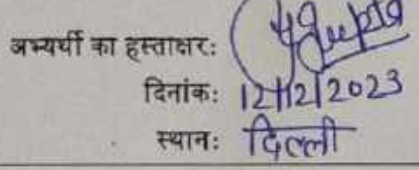 अभ्यर्थी का हस्ताक्षर:
दिनांक: 12/12/2023
स्थान: दिल्ली